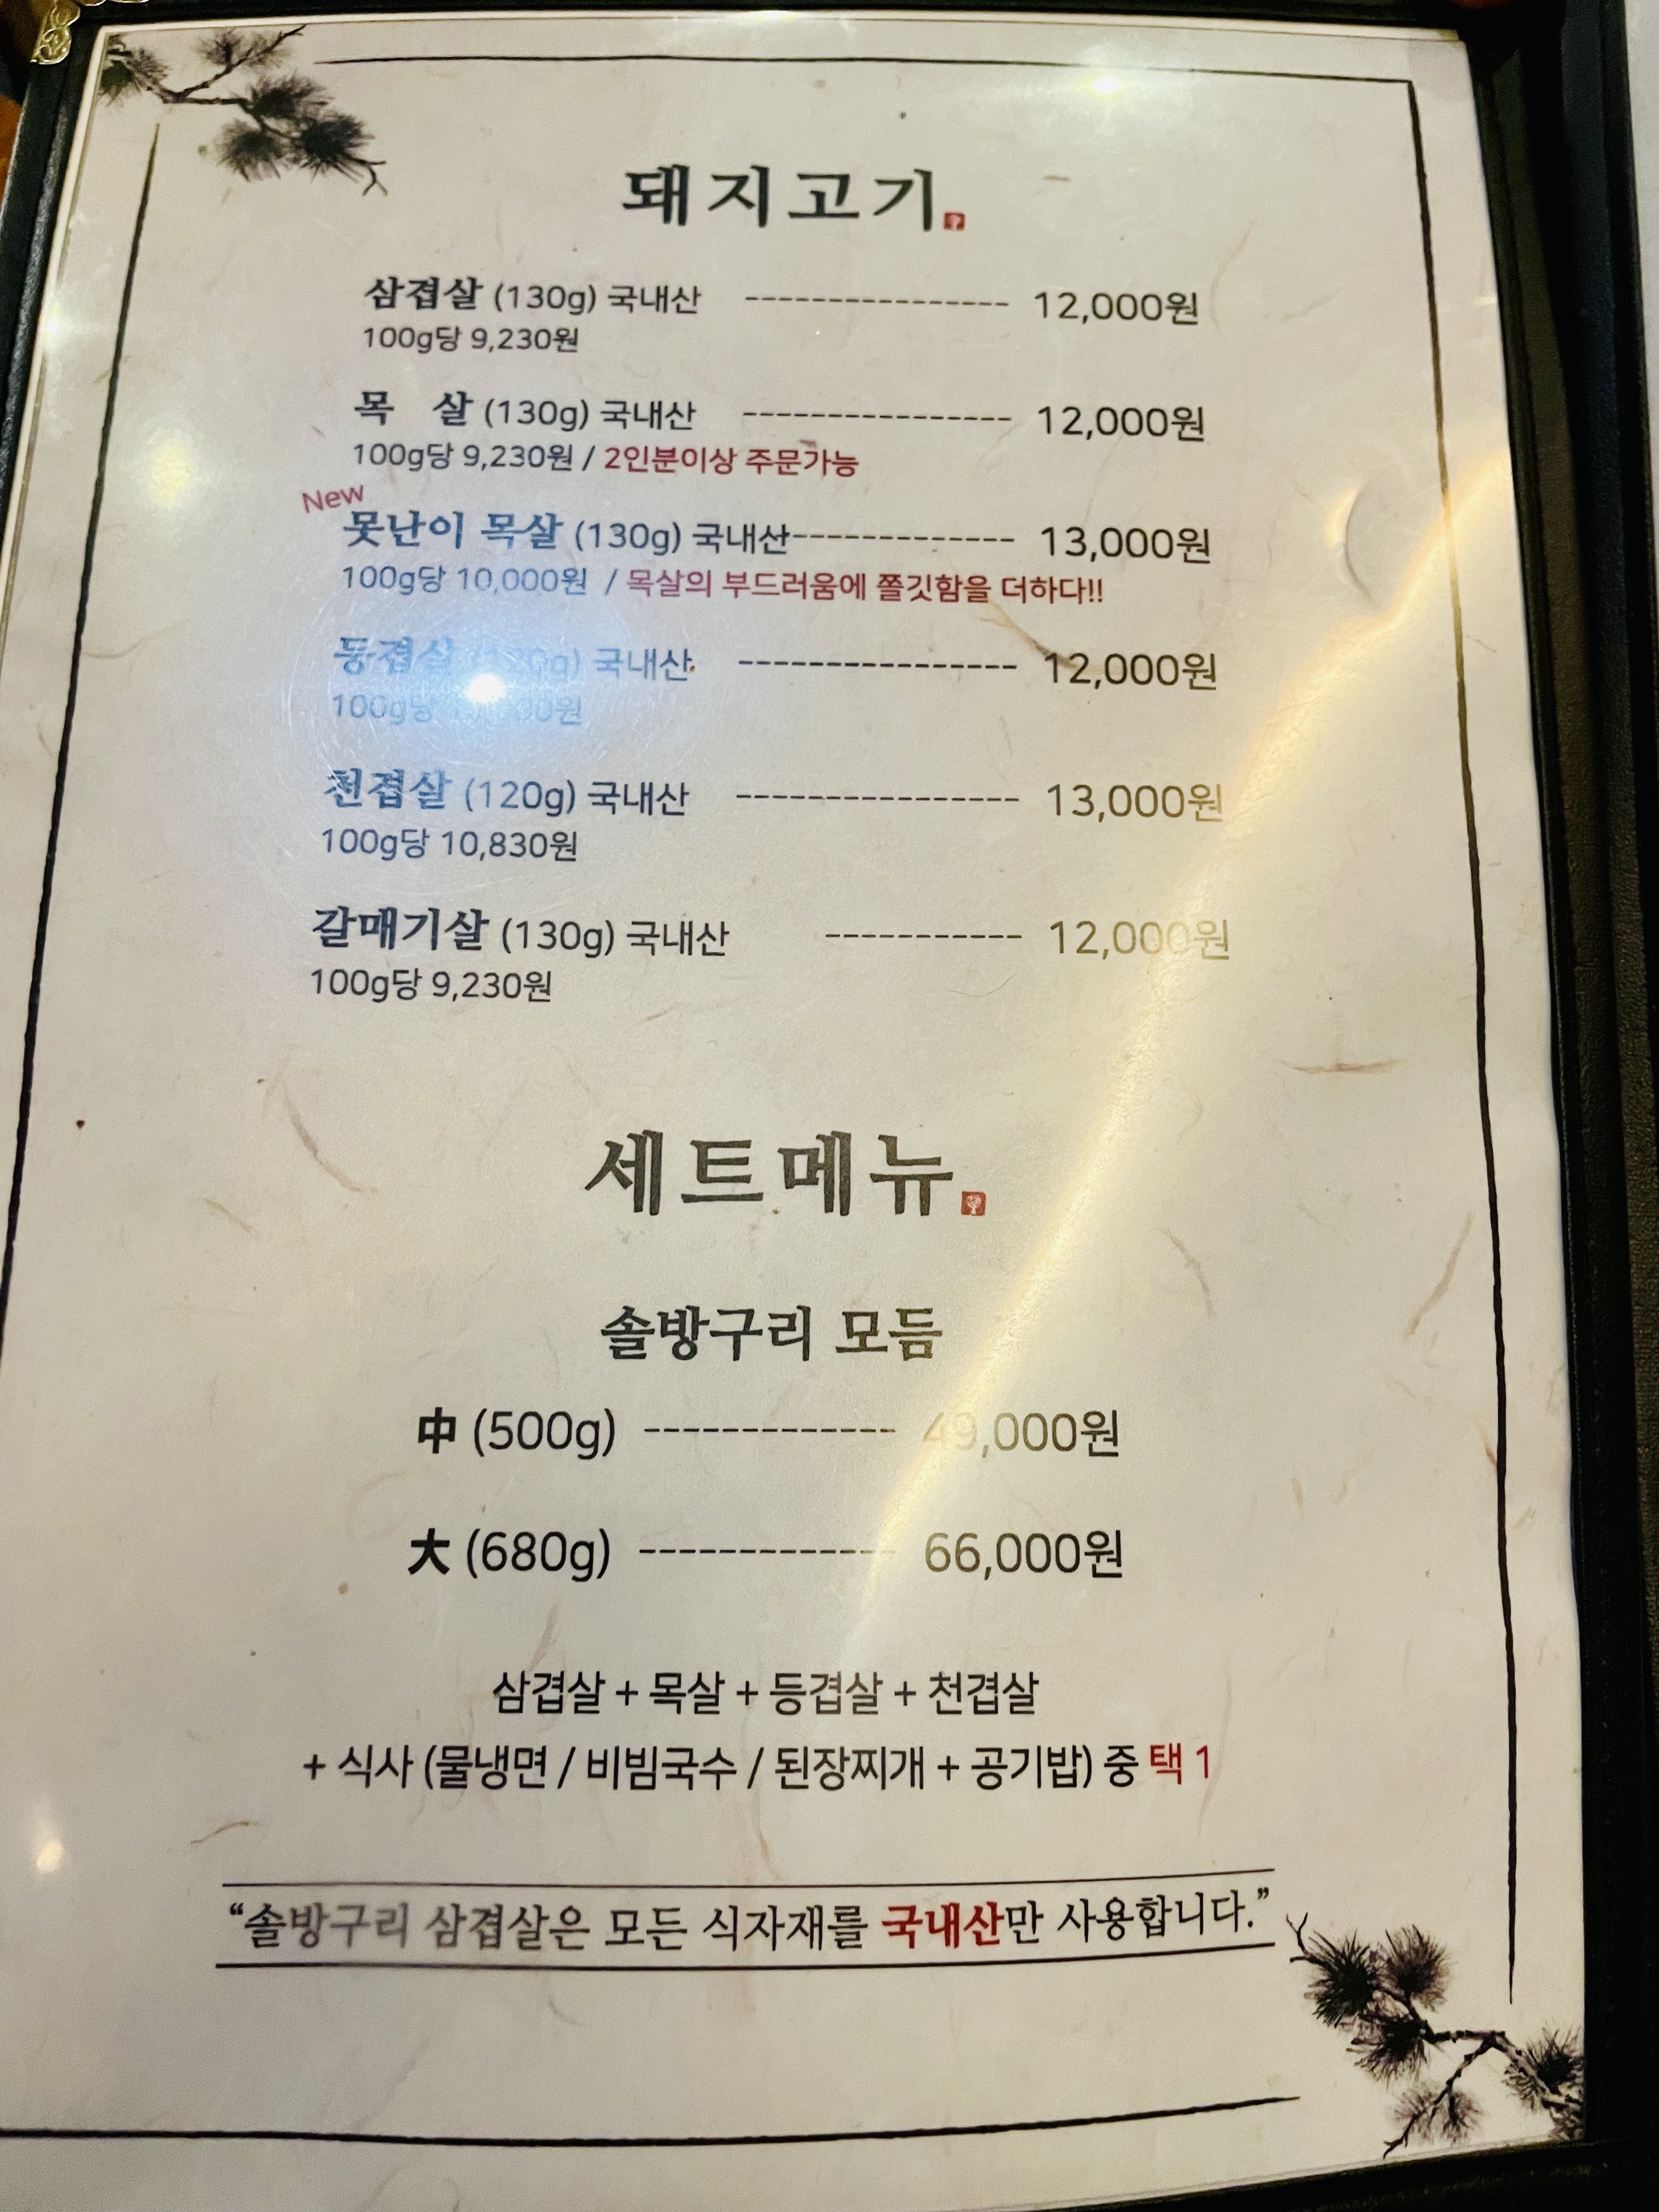 돼지고기
삼겹살 (130g) 국내산 ---------------- 12,000원
100g당 9,230원
목 살 (130g) 국내산 ---------------- 12,000원
100g당 9,230원 / 2인분이상 주문가능
New
못난이 목살 (130g) 국내산------------- 13,000원
100g당 10,000원 / 목살의 부드러움에 쫄깃함을 더하다!!
등겹살 국내산 ---------------- 12,000원
100g당
천겹살 (120g) 국내산 ---------------- 13,000원
100g당 10,830원
갈매기살 (130g) 국내산 ----------- 12,000원
100g당 9,230원
세트메뉴
솔방구리 모듬
中 (500g) ------------- 49,000원
大 (680g) ------------- 66,000원
삼겹살 + 목살 + 등겹살 + 천겹살
+ 식사 (물냉면 / 비빔국수 / 된장찌개 + 공기밥) 중 택 1
“솔방구리 삼겹살은 모든 식자재를 국내산만 사용합니다.”